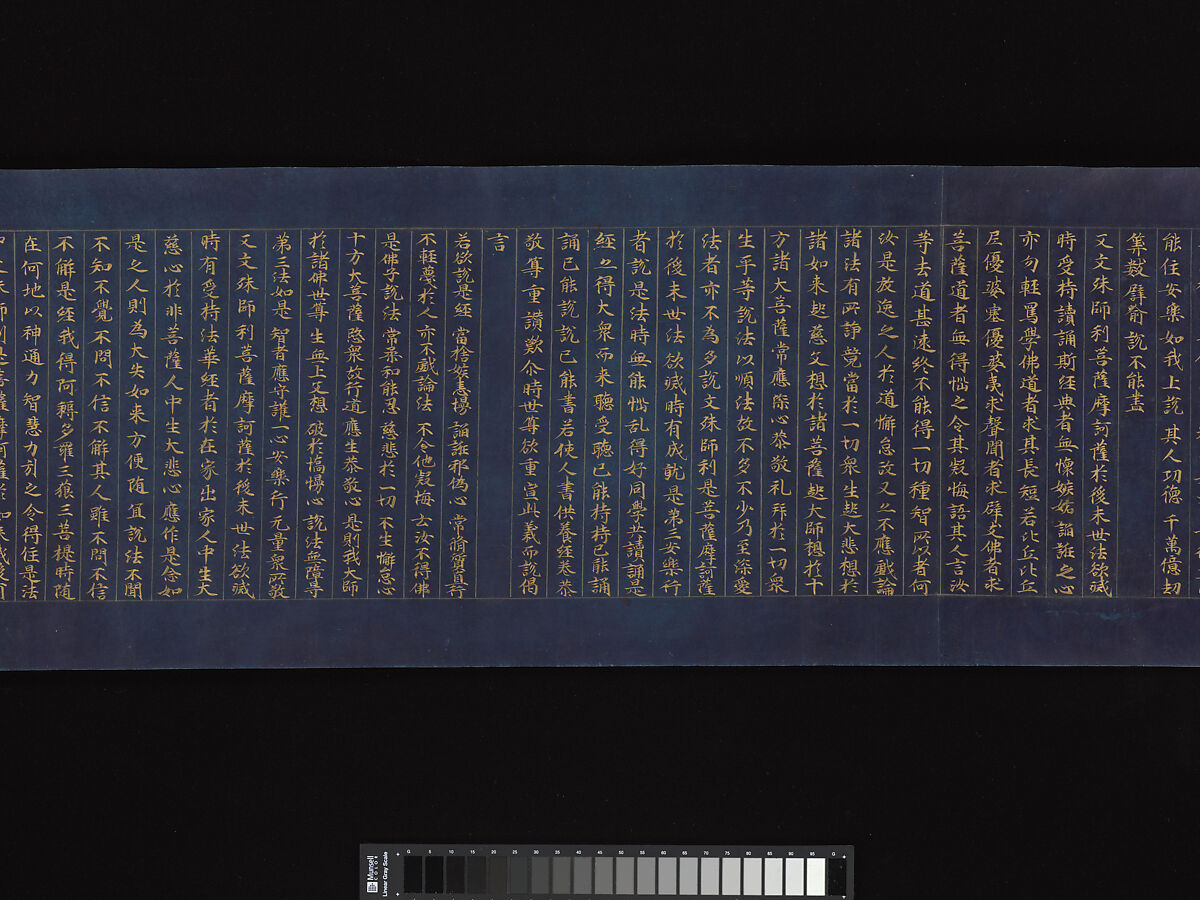 能住安樂如我上說其人功德千萬億劫
筭數譬喻說不能盡
又文殊師利菩薩摩訶薩於後末世法欲滅
時受持讀誦斯經典者無懷嫉妬諂誑之心
亦勿輕罵學佛道者求其長短若比丘比丘
尼優婆塞優婆夷求聲聞者求辟支佛者求
菩薩道者無得惱之令其疑悔語其人言汝
等去道甚遠終不能得一切種智所以者何
汝是放逸之人於道懈怠故又亦不應戲論
諸法有所諍競當於一切衆生起大悲想於
諸如來起慈父想於諸菩薩起大師想於十
方諸大菩薩常應深心恭敬礼拜於一切衆
生平等說法以順法故不多不少乃至深愛
法者亦不為多說文殊師利是菩薩摩訶薩
於後末世法欲滅時有成就是第三安樂行
者說是法時無能惱乱得好同學共讀誦是
經亦得大衆而来聽受聽已能持持已能誦
誦已能說說已能書若使人書供養經卷恭
敬尊重讚歎尒時世尊欲重宣此義而說偈
言
若欲說是經 當捨嫉恚慢 諂誑邪偽心 常脩質直行
不輕蔑於人 亦不戲論法 不令他疑悔 云汝不得佛
是佛子說法 常柔和能忍 慈悲於一切 不生懈怠心
十方大菩薩 愍衆故行道 應生恭敬心 是則我大師
於諸佛世尊 生無上父想 破於憍慢心 說法無障㝵
第三法如是 智者應守護 一心安樂行 无量衆所敬
又文殊師利菩薩摩訶薩於後末世法欲滅
時有受持法華經者於在家出家人中生大
慈心於非菩薩人中生大悲心應作是念如
是之人則為大失如来方便随冝說法不聞
不知不覺不問不信不解其人雖不問不信
不解是經我得阿耨多羅三藐三菩提時随
在何地以神通力智慧力引之令得住是法
Munsell COLOR
Linear Gray Scale
G 5 10 15 20 25 30 35 40 45 50 55 60 65 70 75 80 85 90 95 G